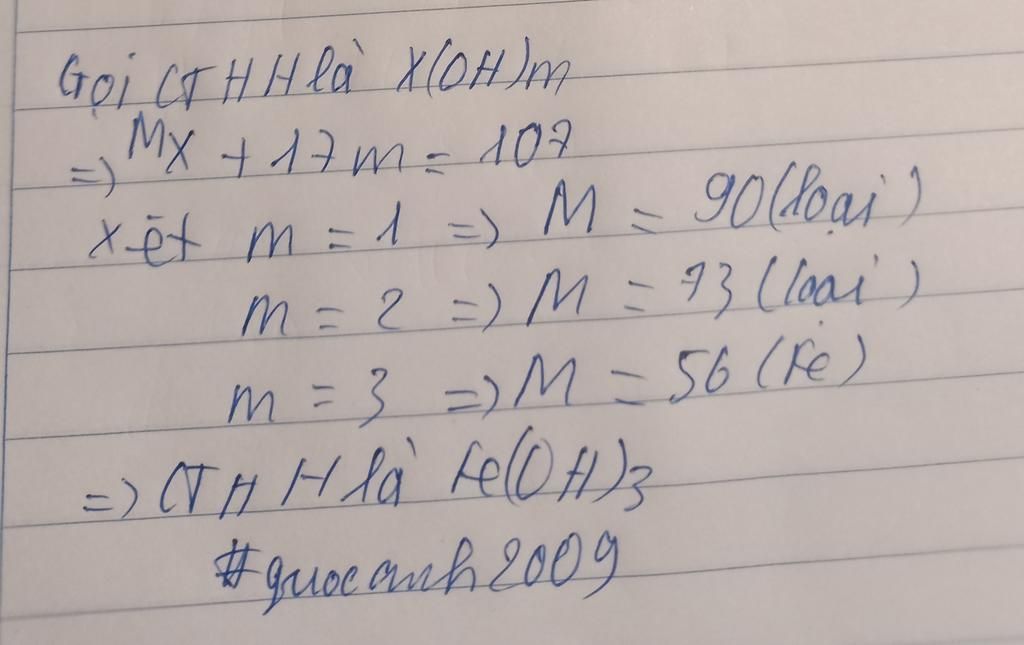 Gọi CTHH là X(OH)m
=> MX + 17m = 107
xét m = 1 => M = 90 (loại)
m = 2 => M = 73 (loại)
m = 3 => M = 56 (Fe)
=> CTHH là Fe(OH)3
#quocanh2009